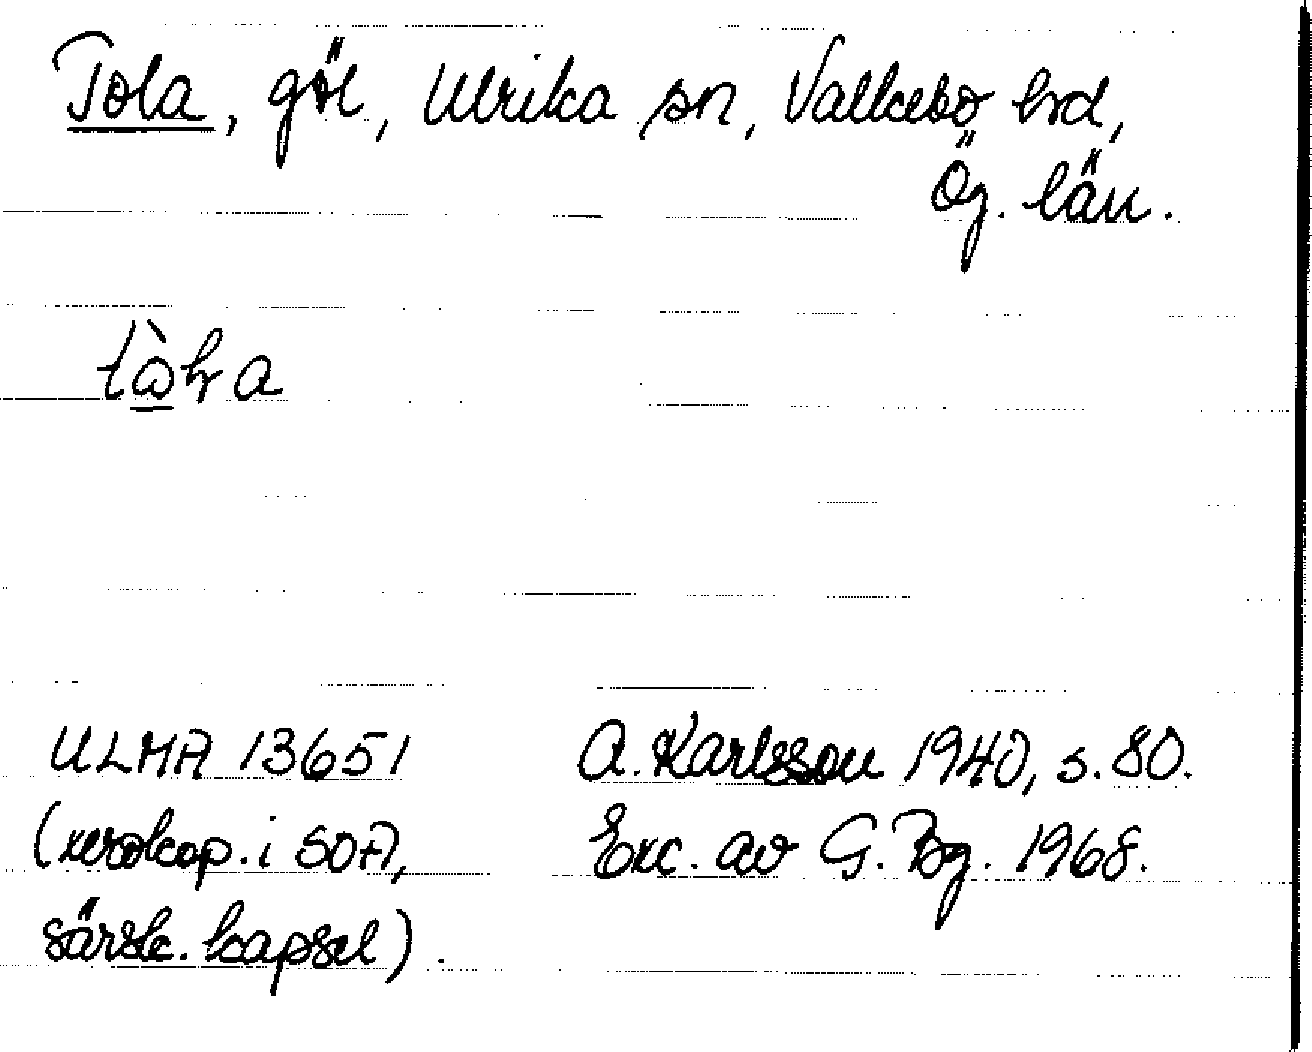 Tola, göl, Ulrika sn, Valkebo hrd,
Ög. län.
ULMA 13651
(xerokop. i SOA,
särsk. kapsel).
A. Karlsson 1940, s. 80.
Exc. av G. Bg. 1968.